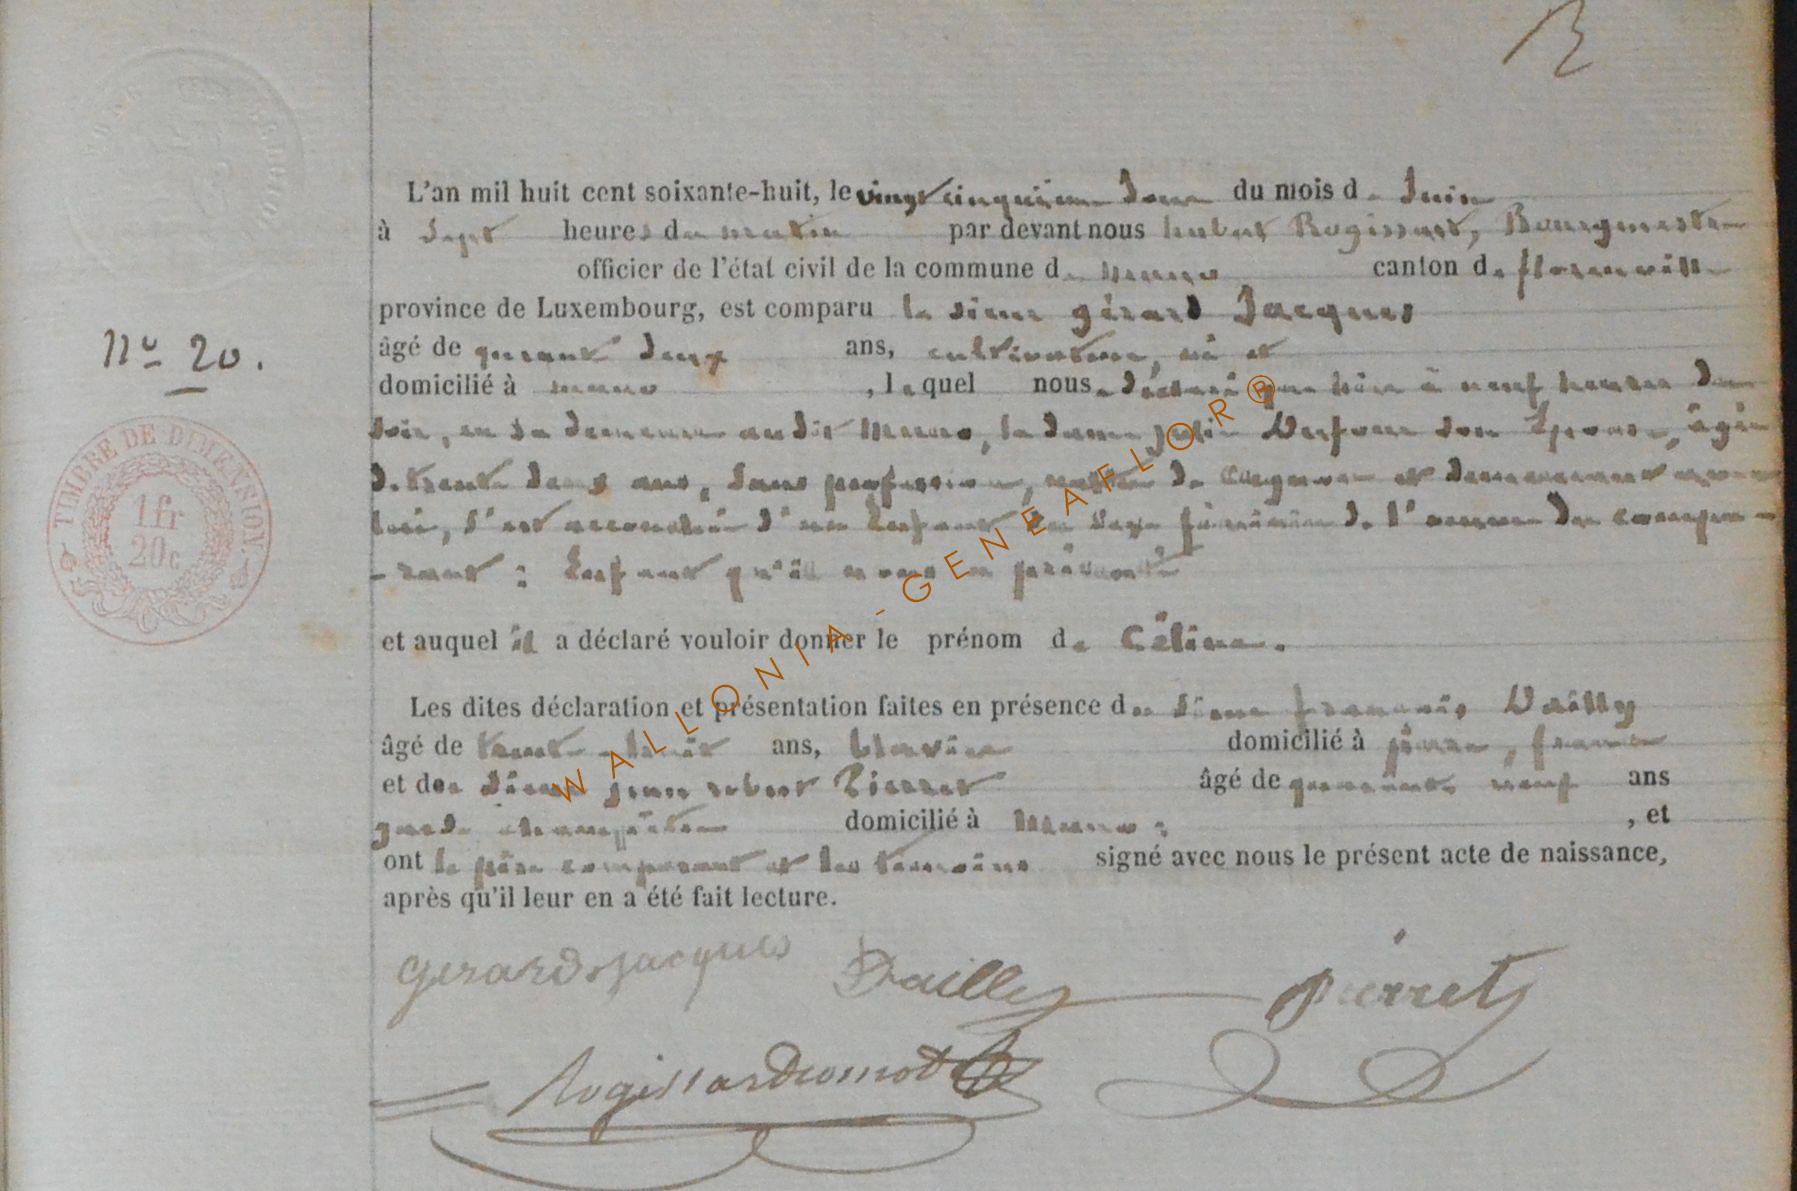 L'an mil huit cent soixante-huit, le vingt cinquième Jour du mois de Juin
à Sept heures du matin par devant nous hubert Rogissart, Bourgmestre
officier de l'état civil de la commune de muno canton de florenville
province de Luxembourg, est comparu le sieur gérard Jacques
âgé de quarante deux ans, cultivateur, né et
domicilié à muno, lequel nous a déclaré que hier à neuf heures du
N° 20.
soir, en sa demeure audit Muno, la dame julie son Epouse, âgée
TIMBRE DE DIMENSION.
1 fr
20c
de trente deux ans, sans profession, native de et demeurant avec
lui, s'est accouchée d'un Enfant du Sexe féminin de l'oeuvre du compa-
-rant : Enfant qu'il nous a présenté
et auquel il a déclaré vouloir donner le prénom de Céline.
Les dites déclaration et présentation faites en présence du Sieur françois Dailly
âgé de trente-huit ans, domicilié à france
et du Sieur jean robert Pierret âgé de quarante neuf ans
garde champêtre domicilié à Muno ; , et
ont le père comparant et les témoins signé avec nous le présent acte de naissance,
après qu'il leur en a été fait lecture.
gerard jacques Dailly Pierret
WALLONIA-GENEAFLOR®